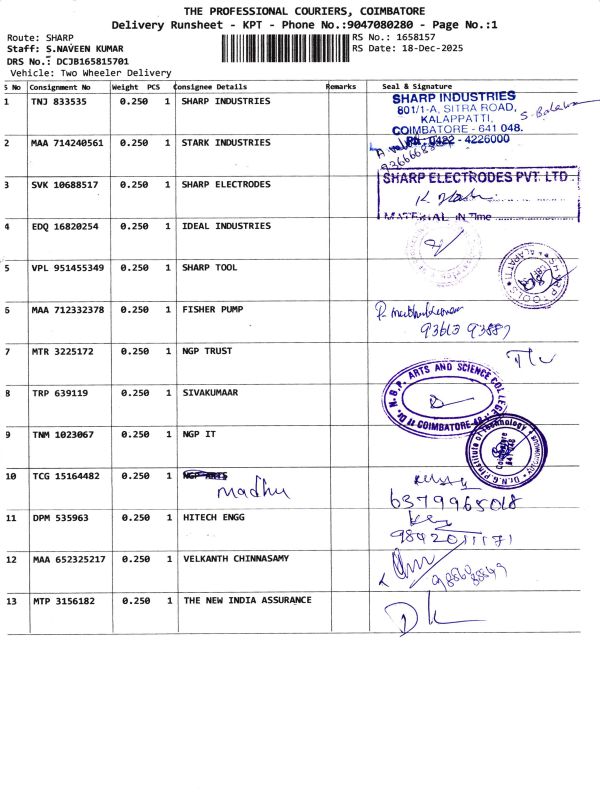 THE PROFESSIONAL COURIERS, COIMBATORE
Delivery Runsheet - KPT - Phone No.:9047080280 - Page No.:1
Route: SHARP
RS No.: 1658157
Staff: S.NAVEEN KUMAR
RS Date: 18-Dec-2025
DRS No.: DCJB165815701
Vehicle: Two Wheeler Delivery
S No Consignment No Weight PCS Consignee Details Remarks Seal & Signature
1 TNJ 833535 0.250 1 SHARP INDUSTRIES
SHARP INDUSTRIES
801/1-A, SITRA ROAD,
KALAPPATTI,
COIMBATORE - 641 048.
PH: 0422 - 4226000
2 MAA 714240561 0.250 1 STARK INDUSTRIES
3 SVK 10688517 0.250 1 SHARP ELECTRODES
SHARP ELECTRODES PVT. LTD
MATERIAL IN Time
4 EDQ 16820254 0.250 1 IDEAL INDUSTRIES
5 VPL 951455349 0.250 1 SHARP TOOL
SHARP TOOLS KALAPATTI
6 MAA 712332378 0.250 1 FISHER PUMP
93613 93887
7 MTR 3225172 0.250 1 NGP TRUST
8 TRP 639119 0.250 1 SIVAKUMAAR
Dr. N.G.P. ARTS AND SCIENCE COLLEGE
COIMBATORE-48
9 TNM 1023067 0.250 1 NGP IT
Dr. N.G.P Institute of Technology
Coimbatore
641 048
10 TCG 15164482 0.250 1 NGP ARTS
madhu
6379965018
11 DPM 535963 0.250 1 HITECH ENGG
9842011171
12 MAA 652325217 0.250 1 VELKANTH CHINNASAMY
13 MTP 3156182 0.250 1 THE NEW INDIA ASSURANCE